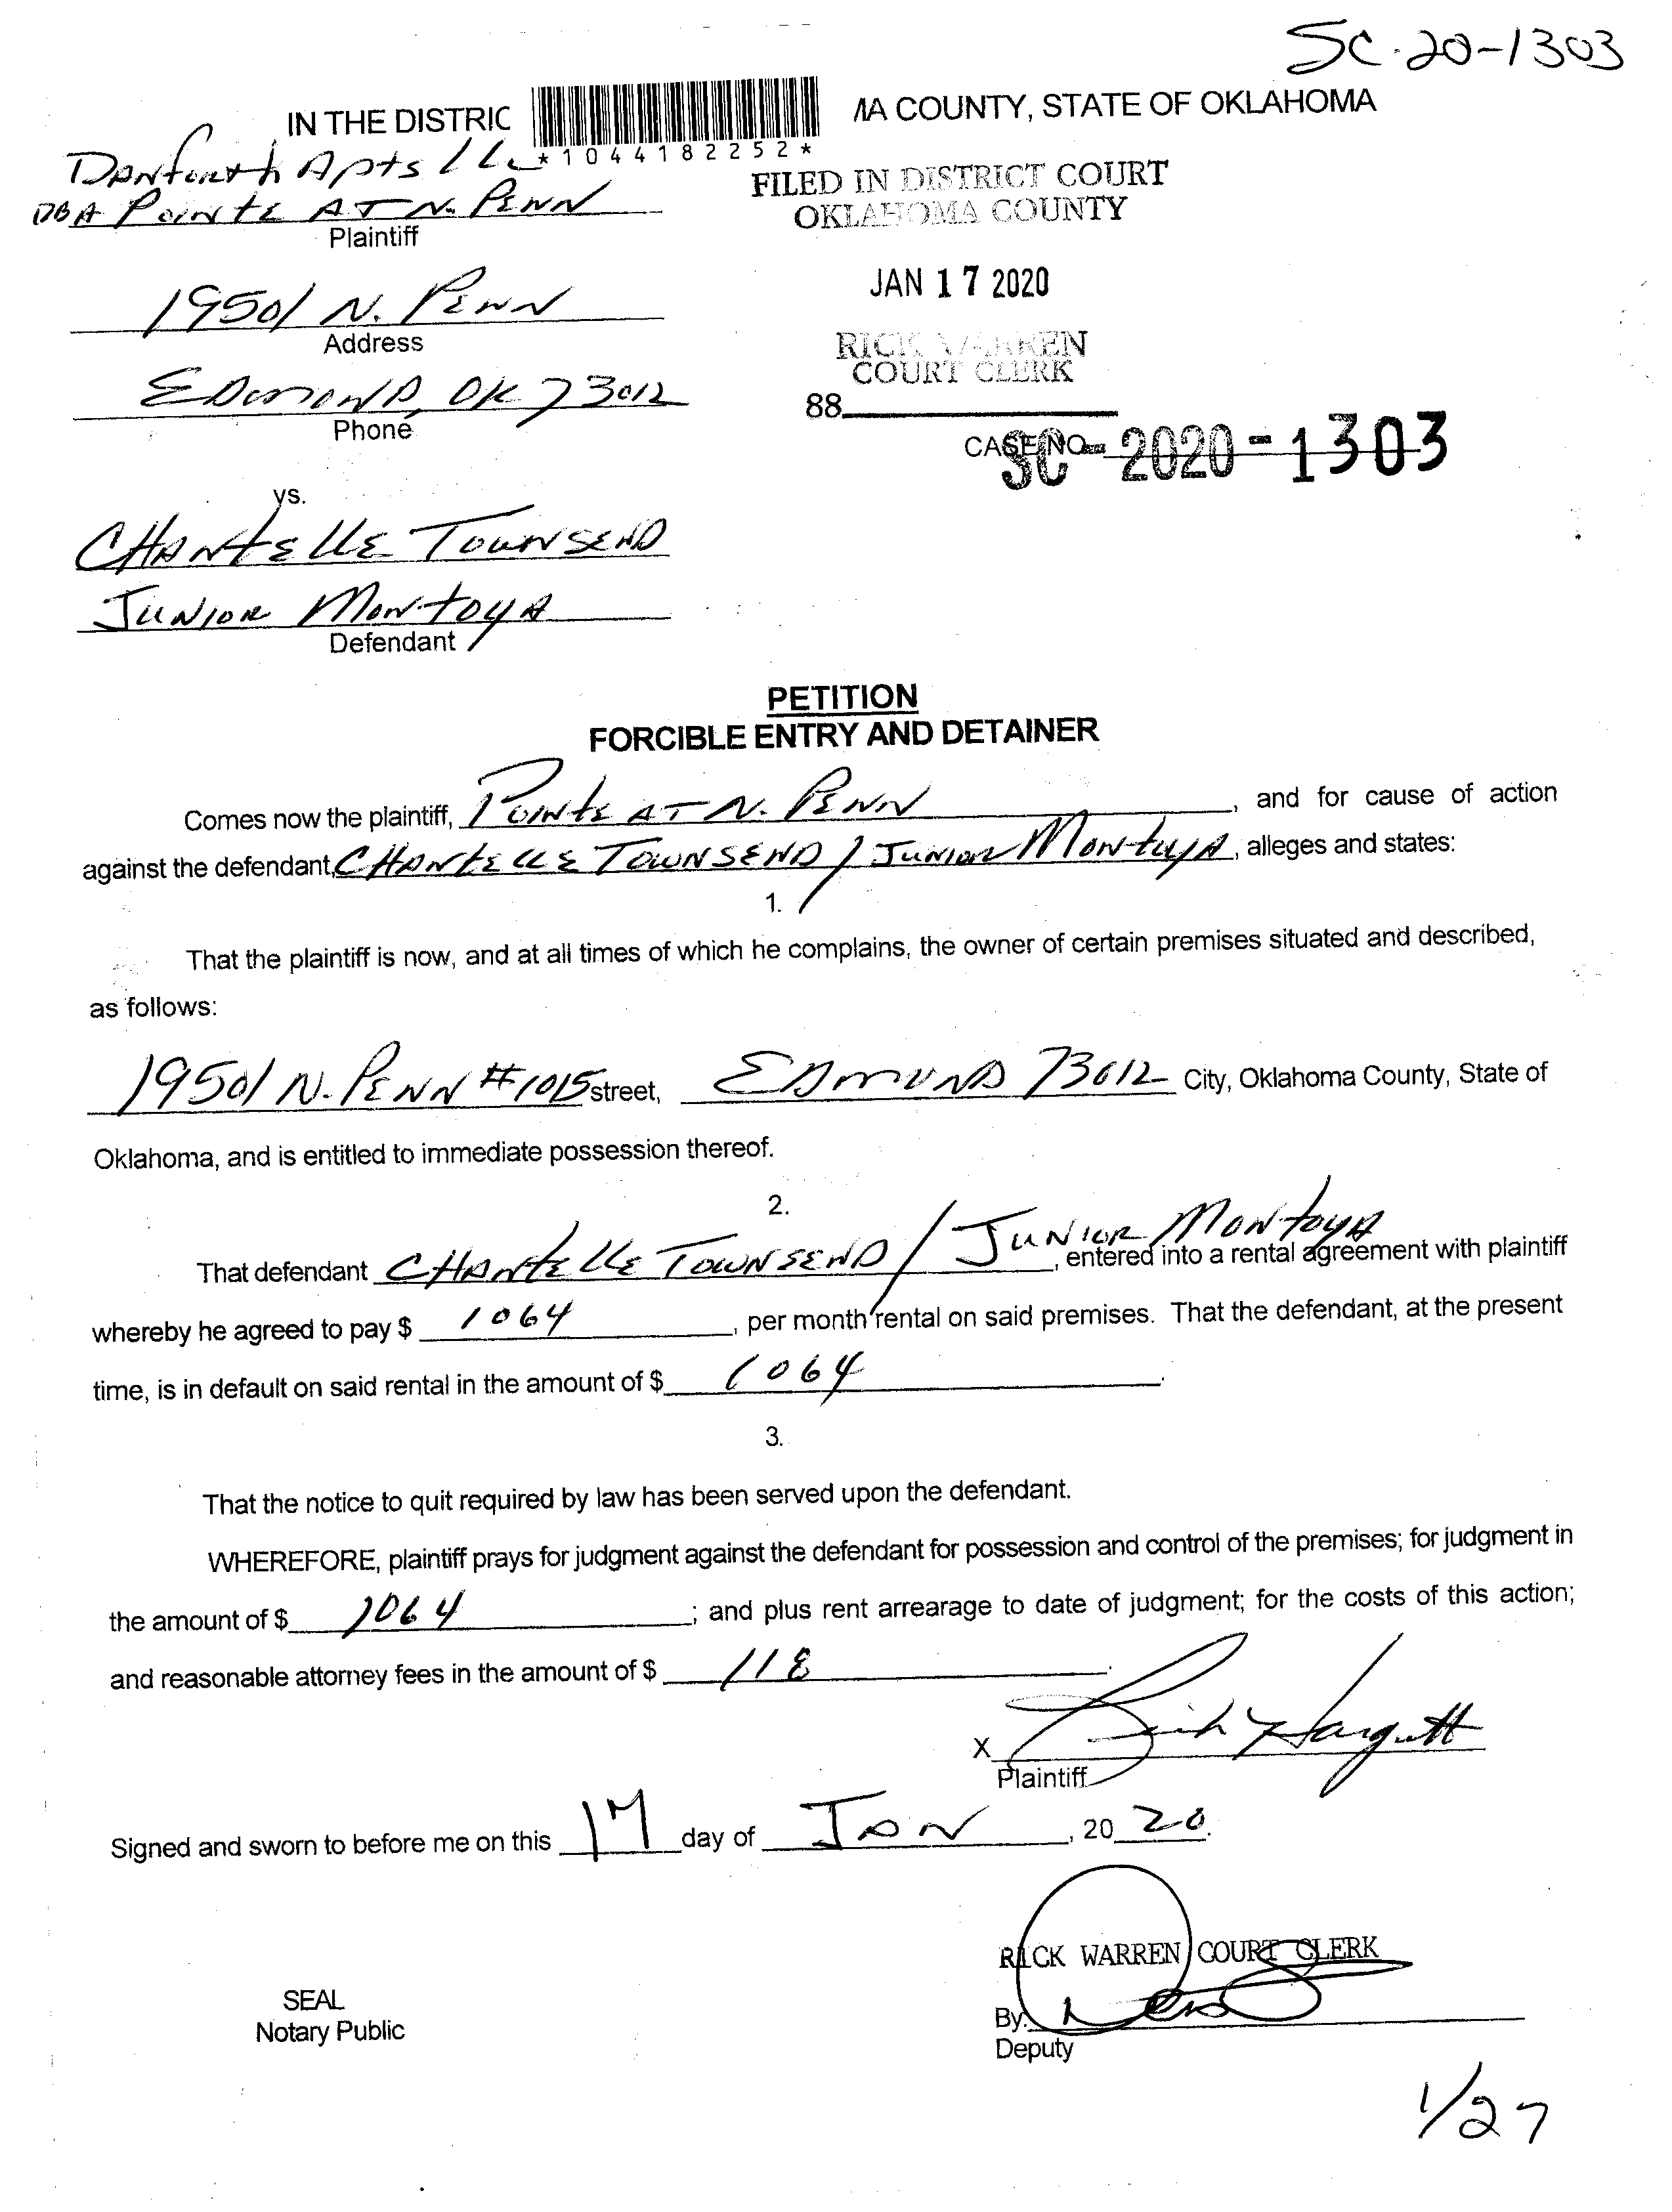 SC-20-1303
IN THE DISTRIC MA COUNTY, STATE OF OKLAHOMA
*1044182252*
Danforth Apts LLC
DBA Pointe AT N. Penn
Plaintiff
FILED IN DISTRICT COURT
OKLAHOMA COUNTY
JAN 17 2020
1950/ N. Penn
Address
RICK WARREN
COURT CLERK
Edmond, OK 73012
Phone
88
CASE NO. SC-2020-1303
vs.
Chantelle Townsend
Junior Montoya
Defendant
PETITION
FORCIBLE ENTRY AND DETAINER
Comes now the plaintiff, Pointe AT N. Penn, and for cause of action
against the defendant, Chantelle Townsend / Junior Montoya, alleges and states:
1.
That the plaintiff is now, and at all times of which he complains, the owner of certain premises situated and described,
as follows:
19501 N. Penn #1015 street, Edmond 73012 City, Oklahoma County, State of
Oklahoma, and is entitled to immediate possession thereof.
2.
That defendant Chantelle Townsend / Junior Montoya, entered into a rental agreement with plaintiff
whereby he agreed to pay $ 1064, per month rental on said premises. That the defendant, at the present
time, is in default on said rental in the amount of $ 1064.
3.
That the notice to quit required by law has been served upon the defendant.
WHEREFORE, plaintiff prays for judgment against the defendant for possession and control of the premises; for judgment in
the amount of $ 1064; and plus rent arrearage to date of judgment; for the costs of this action;
and reasonable attorney fees in the amount of $ 118.
X
Plaintiff
Signed and sworn to before me on this 17 day of Jan, 20 20.
RICK WARREN COURT CLERK
SEAL
Notary Public
By:
Deputy
1/27